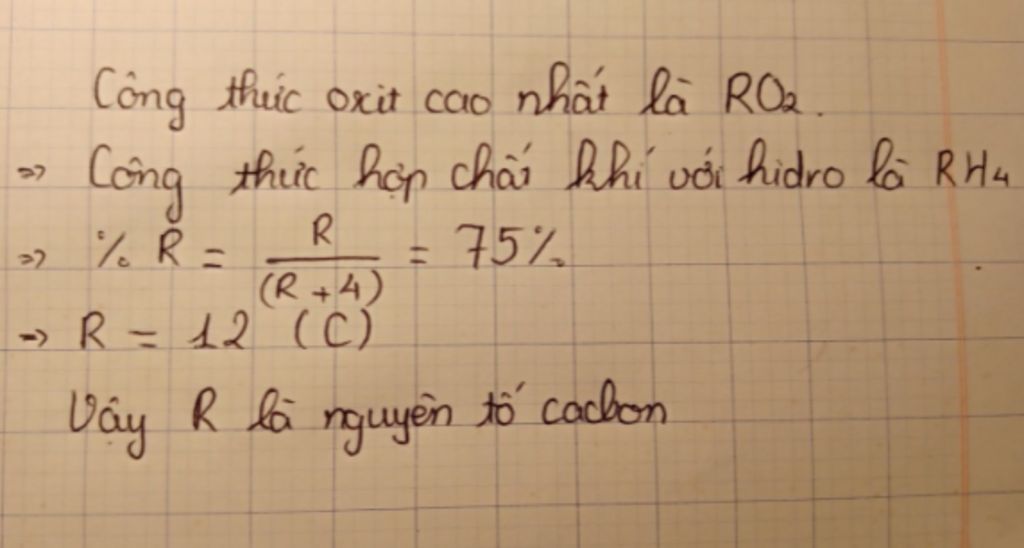 Công thức oxit cao nhất là RO₂.
=> Công thức hợp chất khí với hidro là RH₄
=> % R = R/(R + 4) = 75%
=> R = 12 (C)
Vậy R là nguyên tố cacbon